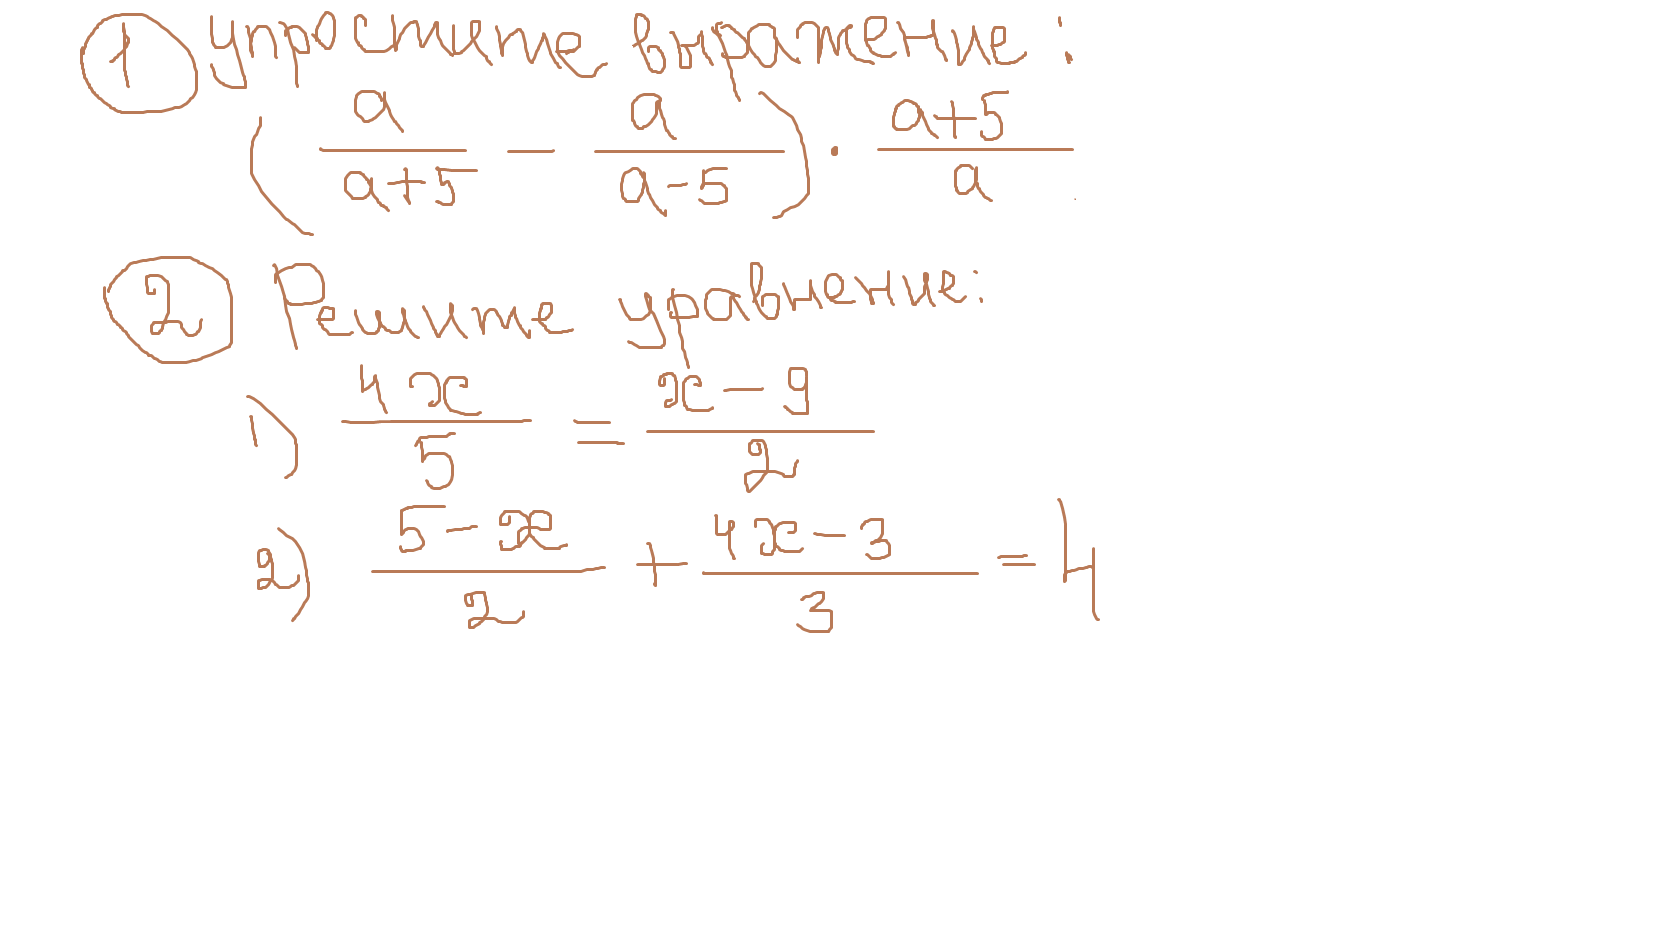 1 упростите выражение:
( a/(a+5) − a/(a-5) ) · (a+5)/a
2 Решите уравнение:
1) 4x/5 = (x-9)/2
2) (5-x)/2 + (4x-3)/3 = 4